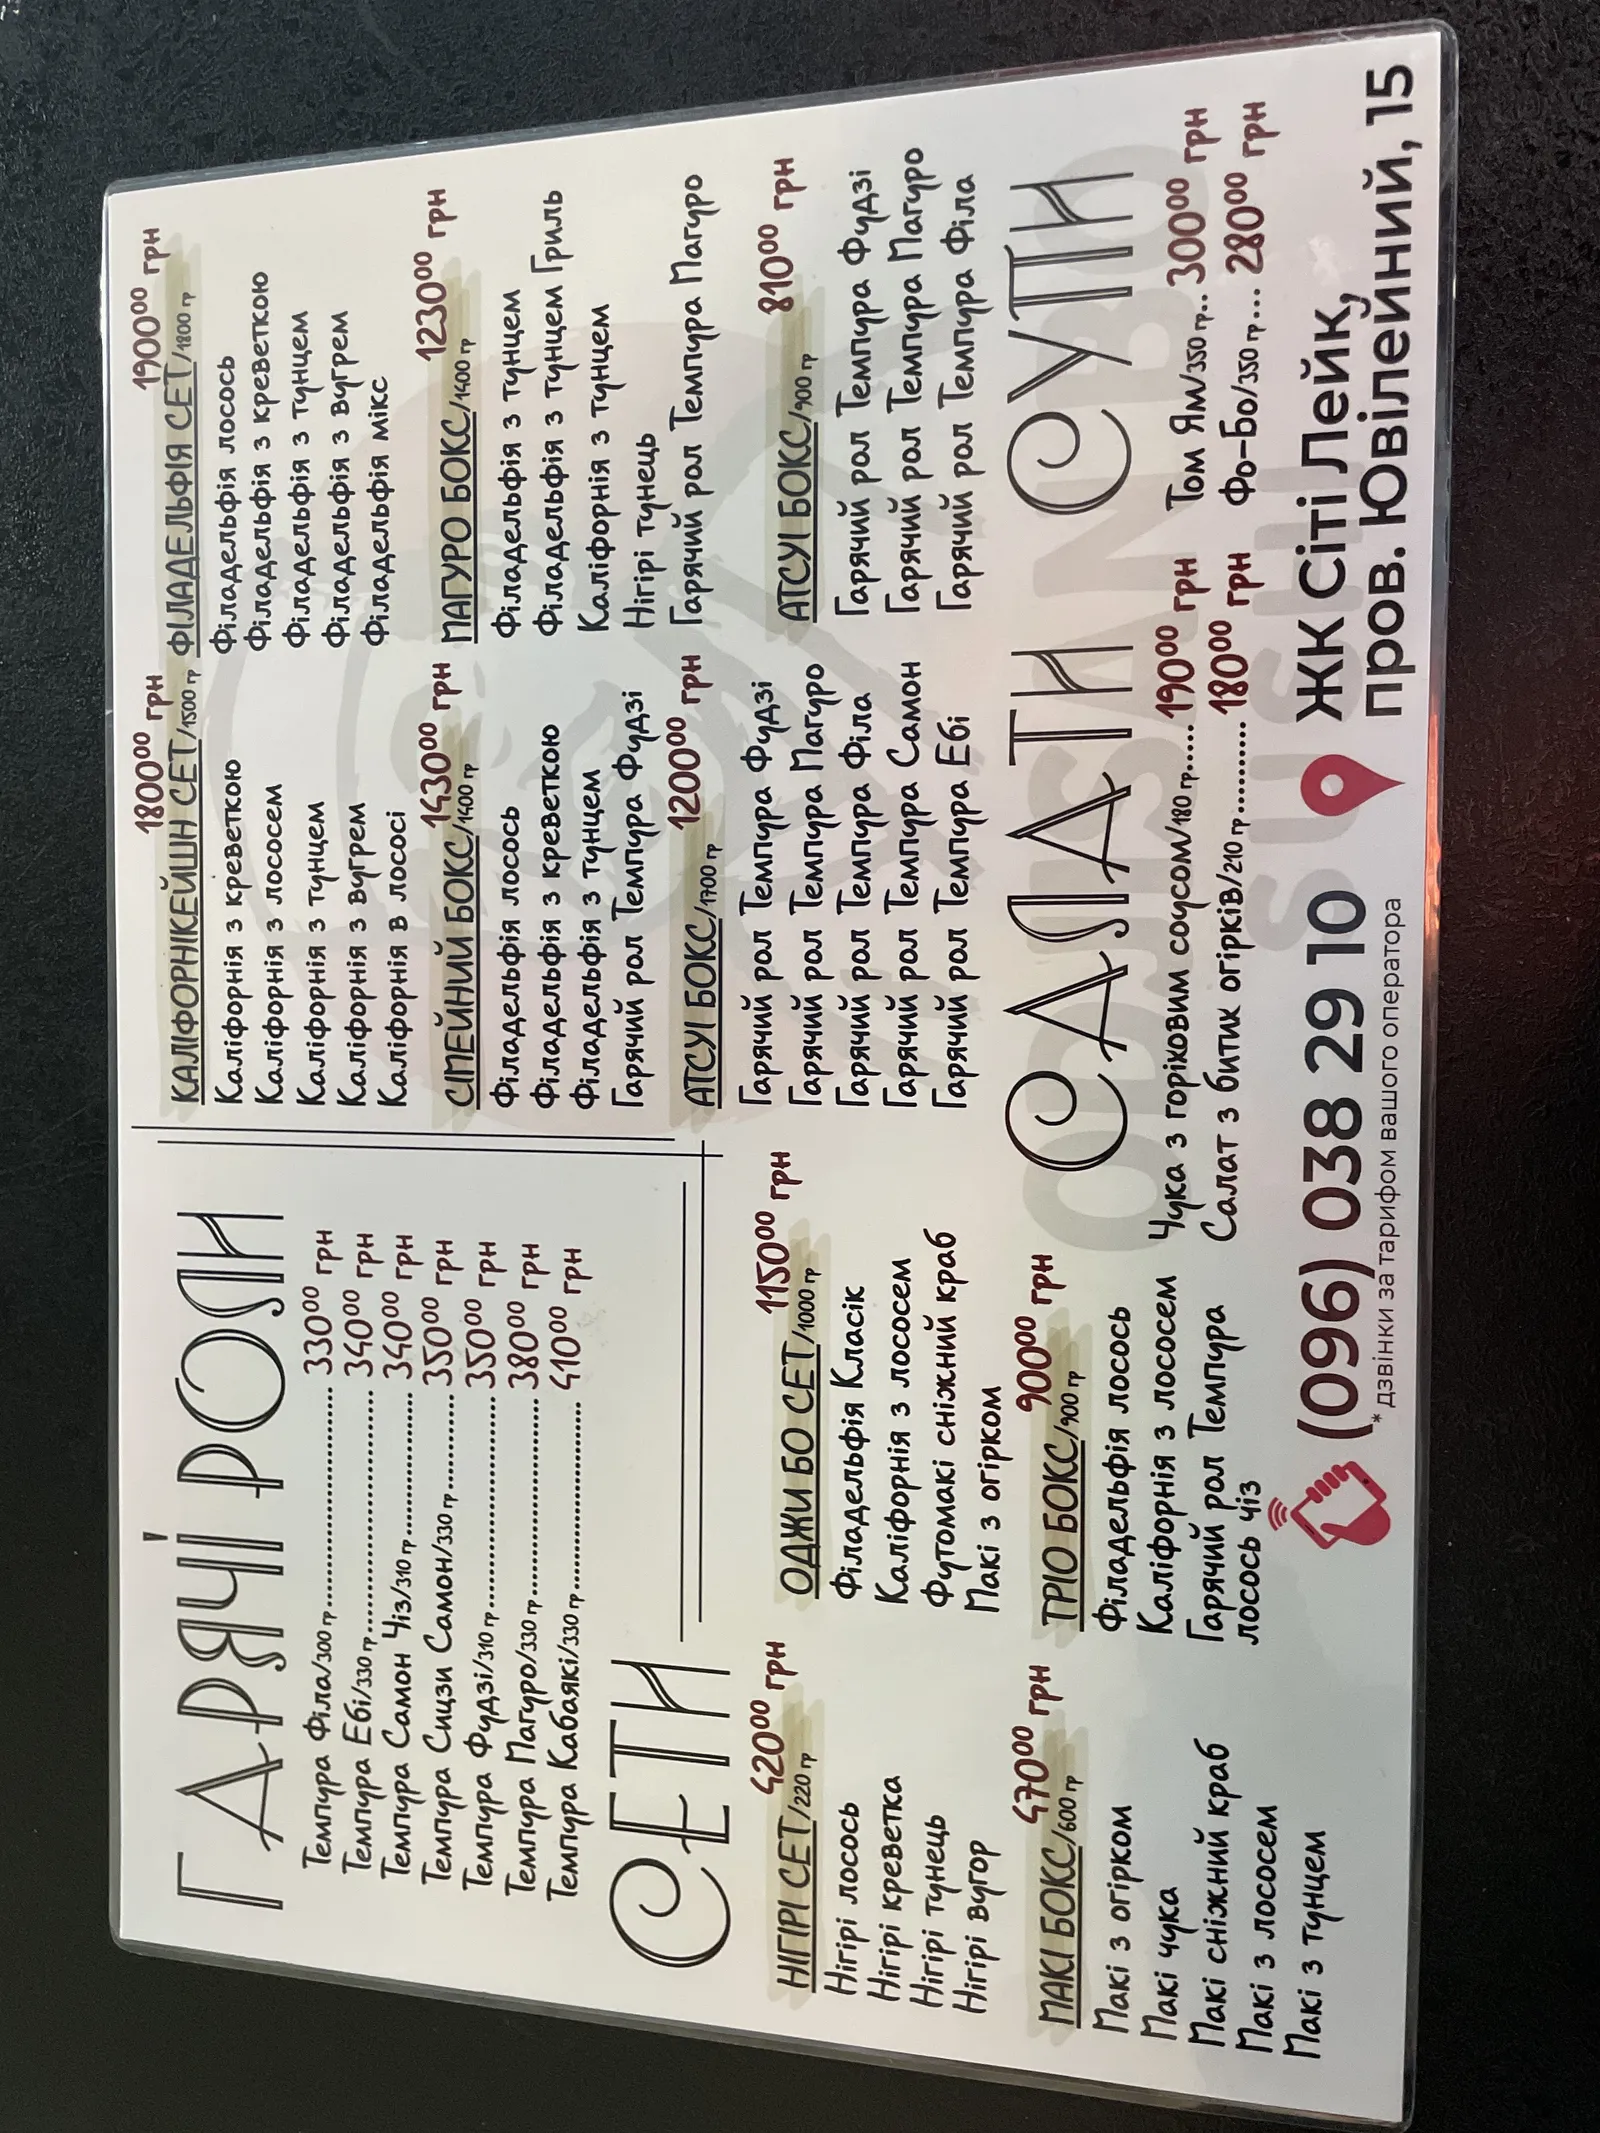 ГАРЯЧІ РОЛИ
Темпура Філа/300 гр........ 330⁰⁰ грн
Темпура Ебі/330 гр........ 340⁰⁰ грн
Темпура Самон Чіз/310 гр........ 340⁰⁰ грн
Темпура Сицзи Самон/330 гр........ 350⁰⁰ грн
Темпура Фудзі/310 гр........ 350⁰⁰ грн
Темпура Магуро/330 гр........ 380⁰⁰ грн
Темпура Кабаякі/330 гр........ 410⁰⁰ грн
СЕТИ
420⁰⁰ грн
НІГІРІ СЕТ/220 гр
Нігірі лосось
Нігірі креветка
Нігірі тунець
Нігірі вугор
470⁰⁰ грн
МАКІ БОКС/600 гр
Макі з огірком
Макі чука
Макі сніжний краб
Макі з лососем
Макі з тунцем
1150⁰⁰ грн
ОДЖИ БО СЕТ/1000 гр
Філадельфія Класік
Каліфорнія з лососем
Футомакі сніжний краб
Макі з огірком
900⁰⁰ грн
ТРІО БОКС/900 гр
Філадельфія лосось
Каліфорнія з лососем
Гарячий рол Темпура
лосось чіз
1800⁰⁰ грн
КАЛІФОРНІКЕЙШН СЕТ/1500 гр
Каліфорнія з креветкою
Каліфорнія з лососем
Каліфорнія з тунцем
Каліфорнія з вугрем
Каліфорнія в лососі
1430⁰⁰ грн
СІМЕЙНИЙ БОКС/1400 гр
Філадельфія лосось
Філадельфія з креветкою
Філадельфія з тунцем
Гарячий рол Темпура Фудзі
1200⁰⁰ грн
АТСУІ БОКС/1700 гр
Гарячий рол Темпура Фудзі
Гарячий рол Темпура Магуро
Гарячий рол Темпура Філа
Гарячий рол Темпура Самон
Гарячий рол Темпура Ебі
1900⁰⁰ грн
ФІЛАДЕЛЬФІЯ СЕТ/1800 гр
Філадельфія лосось
Філадельфія з креветкою
Філадельфія з тунцем
Філадельфія з вугрем
Філадельфія мікс
1230⁰⁰ грн
МАГУРО БОКС/1400 гр
Філадельфія з тунцем
Філадельфія з тунцем Гриль
Каліфорнія з тунцем
Нігірі тунець
Гарячий рол Темпура Магуро
810⁰⁰ грн
АТСУІ БОКС/900 гр
Гарячий рол Темпура Фудзі
Гарячий рол Темпура Магуро
Гарячий рол Темпура Філа
САЛАТИ
Чука з горіховим соусом/180 гр...... 190⁰⁰ грн
Салат з битих огірків/210 гр........... 180⁰⁰ грн
СУПИ
Том Ям/350 гр.. 300⁰⁰ грн
Фо-Бо/350 гр.... 280⁰⁰ грн
ODJISAN BO
SUSHI
(096) 038 29 10
* дзвінки за тарифом вашого оператора
ЖК Сіті Лейк,
пров. Ювілейний, 15